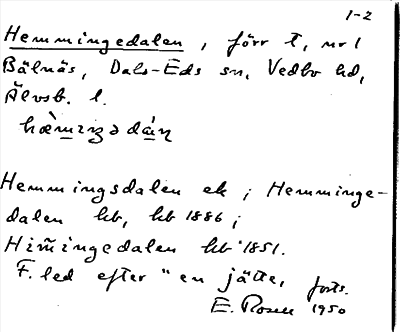 1-2
Hemmingedalen, förr t, nr 1
Bälnäs, Dals-Eds sn, Vedbo hd,
Älvsb. l.
hæ̀mıŋədáṇ
Hemmingsdalen ek; Hemminge-
dalen hb, hb 1886;
Him̃ingedalen hb 1851.
F. led efter "en jätte, forts.
E. Rosell 1950